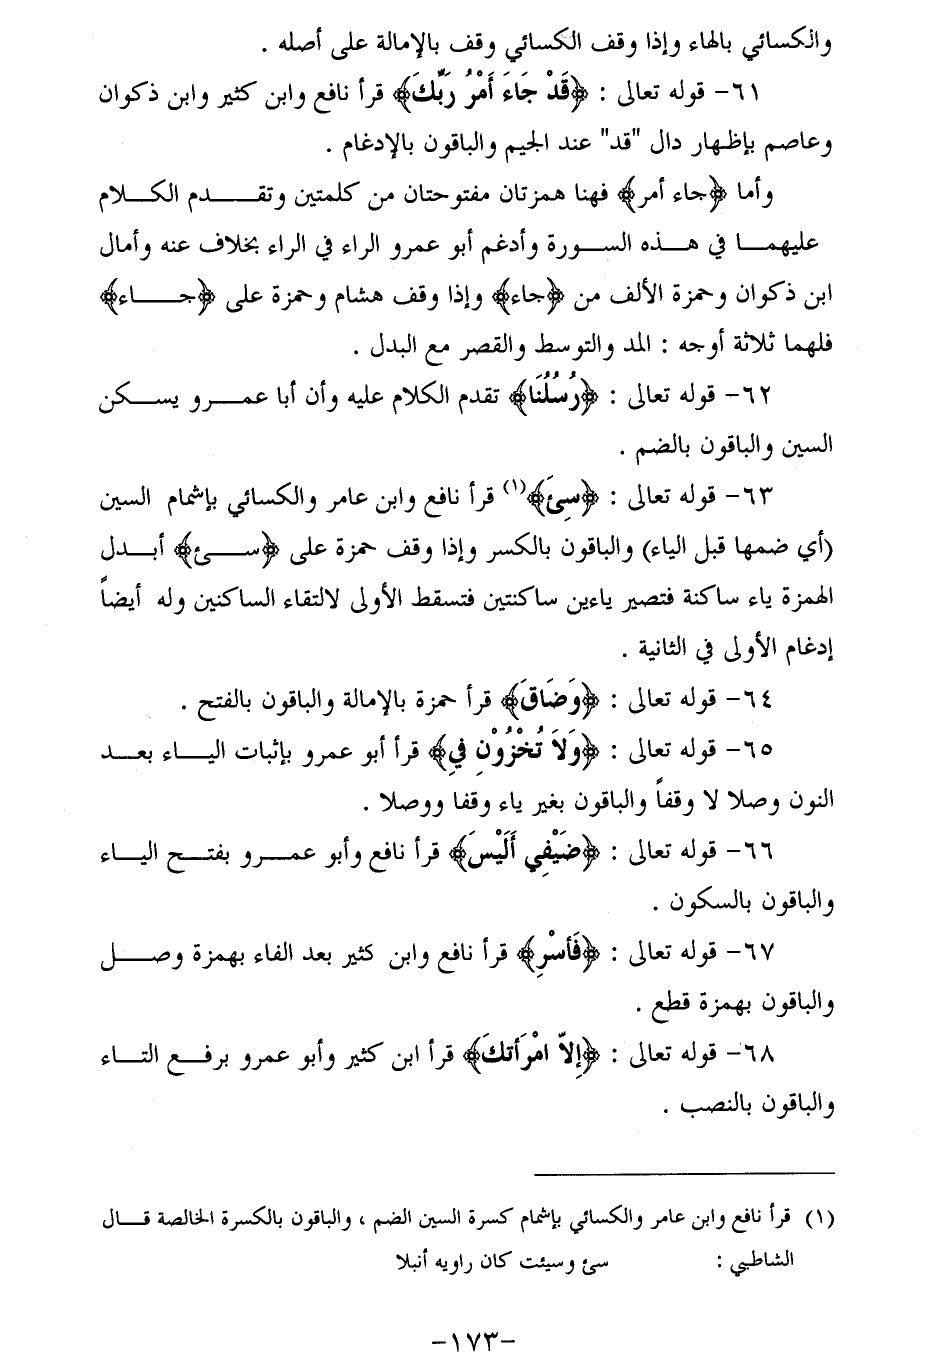 والكسائي بالهاء وإذا وقف الكسائي وقف بالإمالة على أصله .
٦١- قوله تعالى : ﴿قَدْ جَاءَ أَمْرُ رَبِّكَ﴾ قرأ نافع وابن كثير وابن ذكوان
وعاصم بإظهار دال "قد" عند الجيم والباقون بالإدغام .
وأما ﴿جاء أمر﴾ فهنا همزتان مفتوحتان من كلمتين وتقدم الكلام
عليهما في هذه السورة وأدغم أبو عمرو الراء في الراء بخلاف عنه وأمال
ابن ذكوان وحمزة الألف من ﴿جاء﴾ وإذا وقف هشام وحمزة على ﴿جاء﴾
فلهما ثلاثة أوجه : المد والتوسط والقصر مع البدل .
٦٢- قوله تعالى : ﴿رُسُلُنَا﴾ تقدم الكلام عليه وأن أبا عمرو يسكن
السين والباقون بالضم .
٦٣- قوله تعالى : ﴿سِئَ﴾(١) قرأ نافع وابن عامر والكسائي بإشمام السين
(أي ضمها قبل الياء) والباقون بالكسر وإذا وقف حمزة على ﴿سئ﴾ أبدل
الهمزة ياء ساكنة فتصير ياءين ساكنتين فتسقط الأولى لالتقاء الساكنين وله أيضاً
إدغام الأولى في الثانية .
٦٤- قوله تعالى : ﴿وَضَاقَ﴾ قرأ حمزة بالإمالة والباقون بالفتح .
٦٥- قوله تعالى : ﴿وَلاَ تُخْزُوْنِ فِي﴾ قرأ أبو عمرو بإثبات الياء بعد
النون وصلا لا وقفاً والباقون بغير ياء وقفا ووصلا .
٦٦- قوله تعالى : ﴿ضَيْفِي أَلَيْسَ﴾ قرأ نافع وأبو عمرو بفتح الياء
والباقون بالسكون .
٦٧- قوله تعالى : ﴿فَأسْرِ﴾ قرأ نافع وابن كثير بعد الفاء بهمزة وصل
والباقون بهمزة قطع .
٦٨- قوله تعالى : ﴿إِلاّ امْرَأتكَ﴾ قرأ ابن كثير وأبو عمرو برفع التاء
والباقون بالنصب .
(١) قرأ نافع وابن عامر والكسائي بإشمام كسرة السين الضم ، والباقون بالكسرة الخالصة قال
الشاطبي : سئ وسيئت كان راويه أنبلا
-١٧٣-